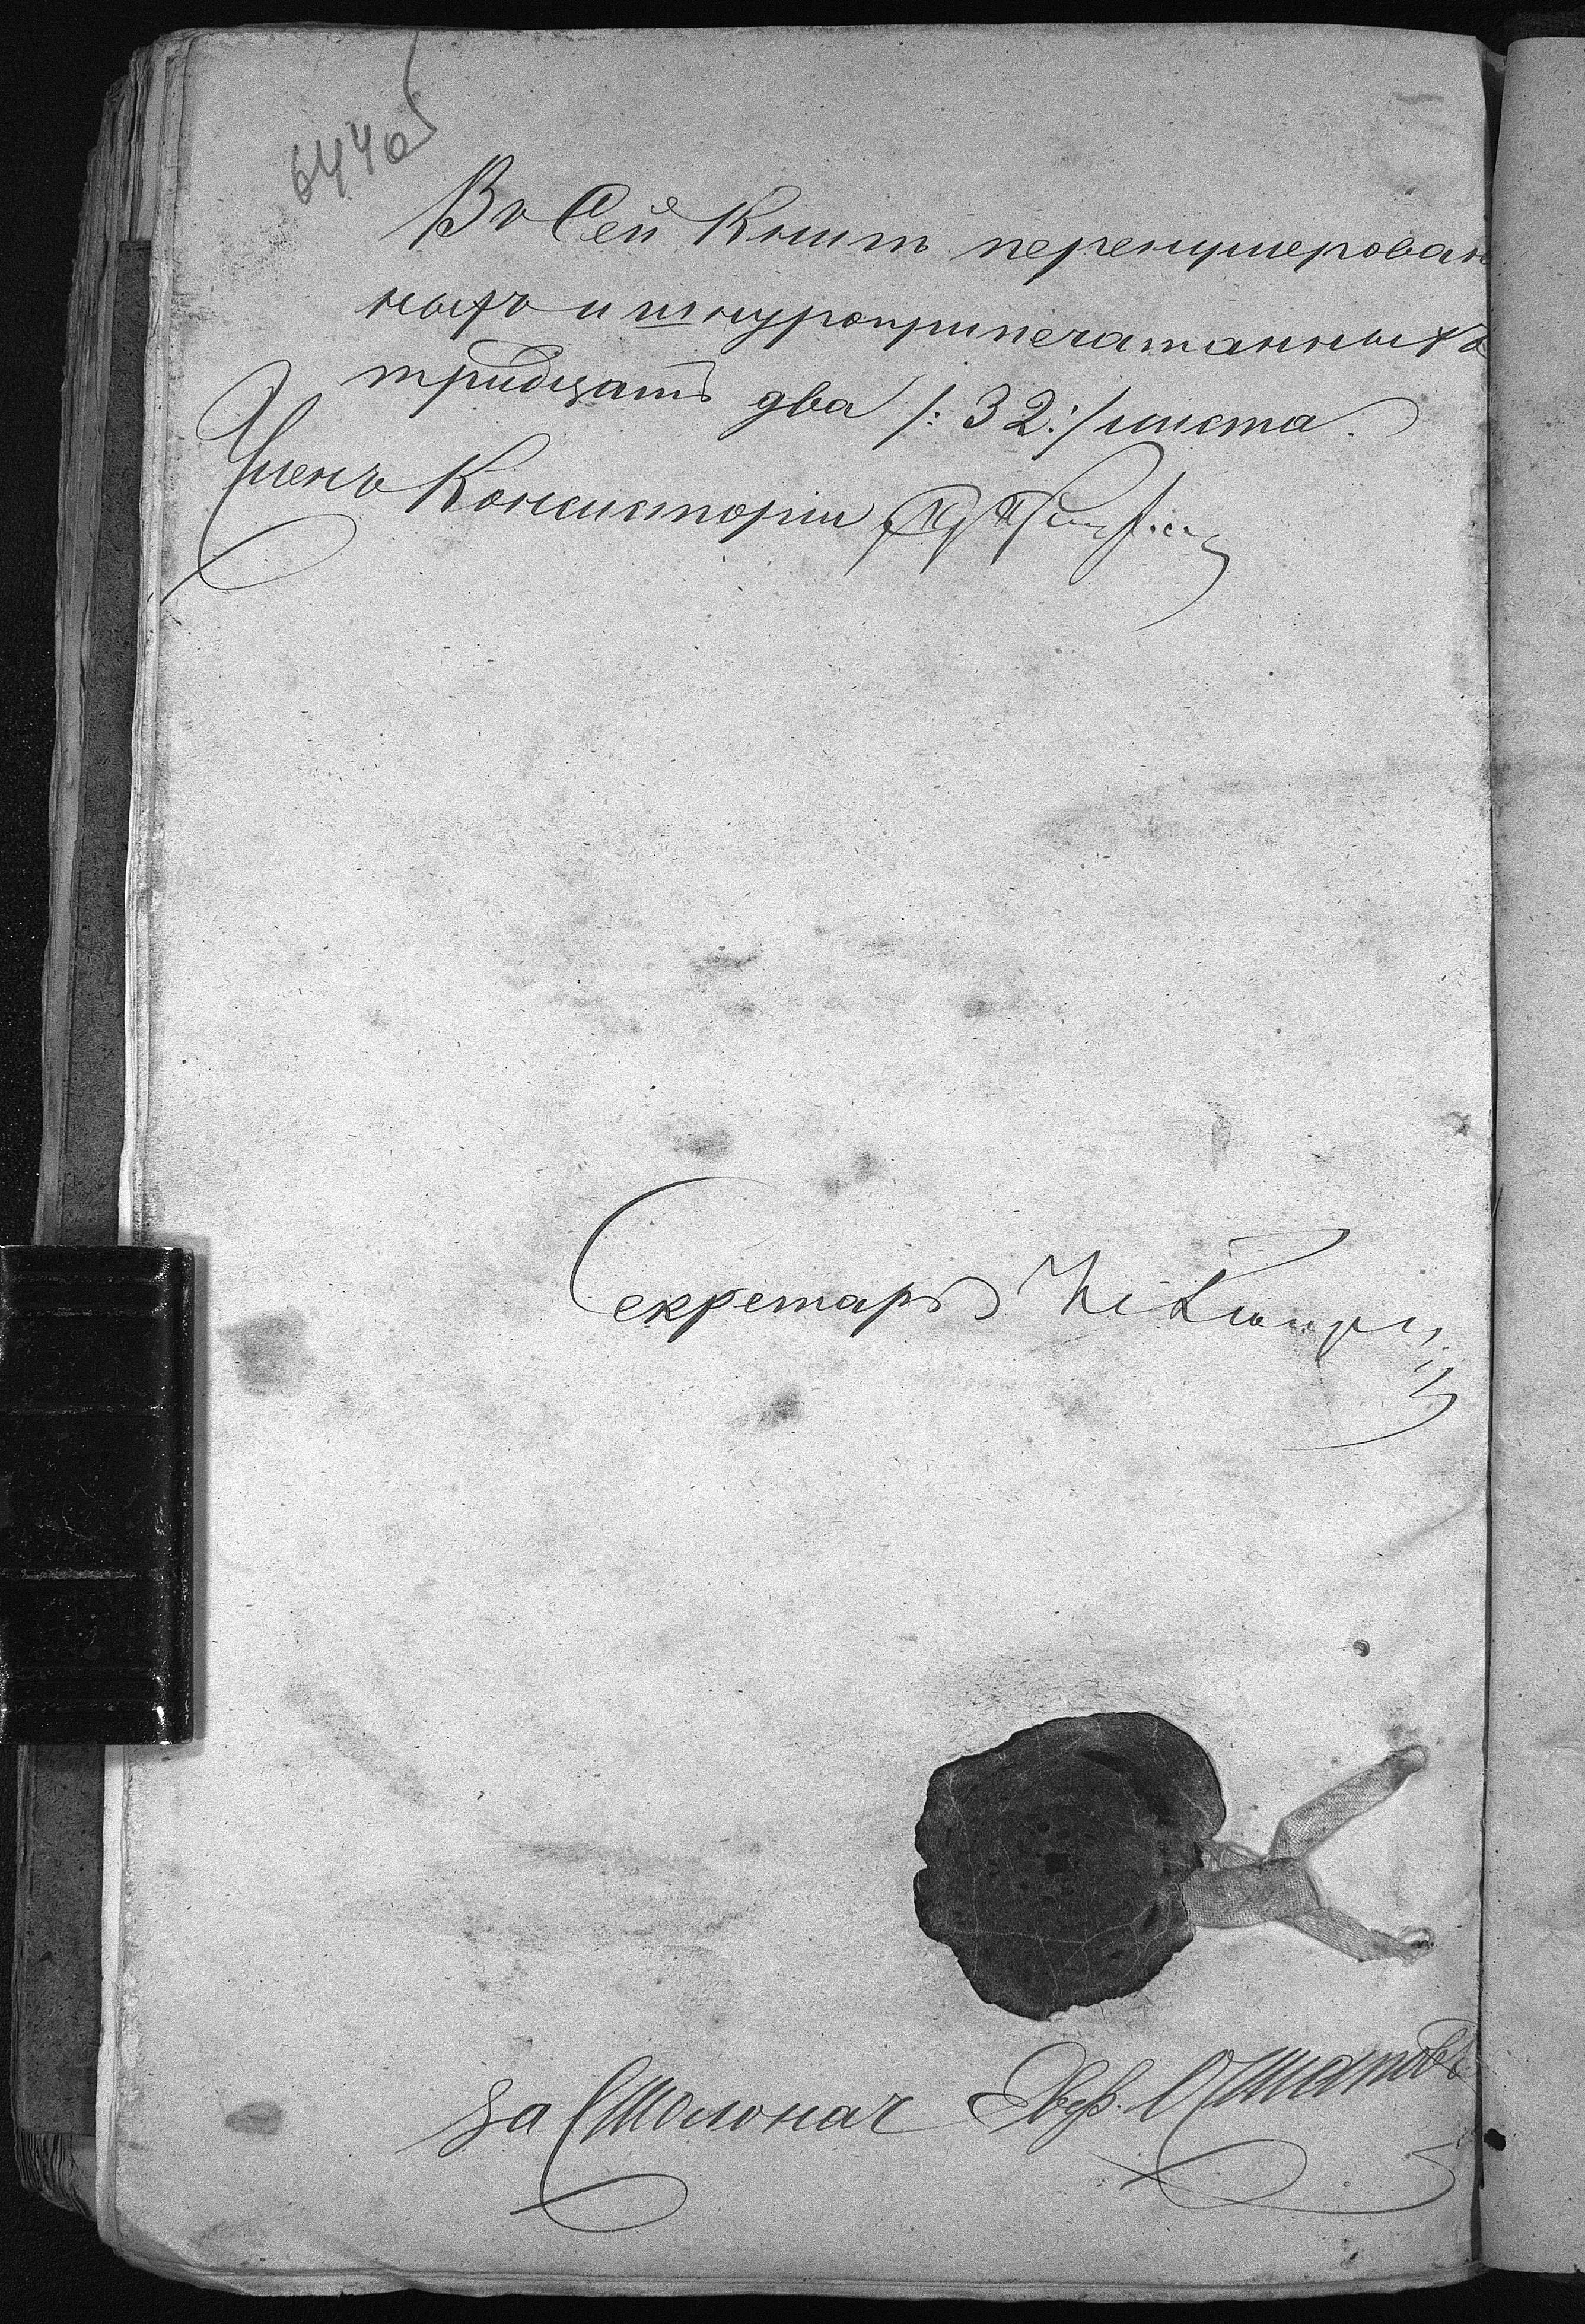 644 об
Въ Сей Книгѣ перенумерован
ныхъ и шнуроприпечатанныхъ
тридцать два /: 32 :/ листа.
Членъ Консисторіи
Секретарь
За Столонач Евф.